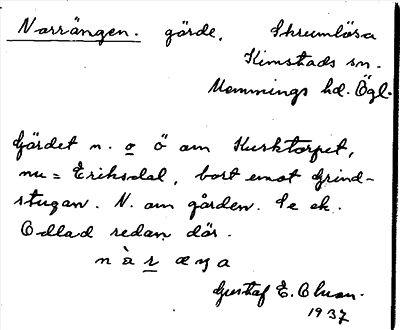 Norrängen. gärde, Skrumlösa
Kimstads sn.
Memmings hd. Ögl.
Gärdet n. o ö om Husktorpet,
nu = Eriksdal, bort emot Grind-
stugan. N. om gården. Se ek.
Odlad redan där.
n à r æŋa
Gustaf E. Olson.
1937